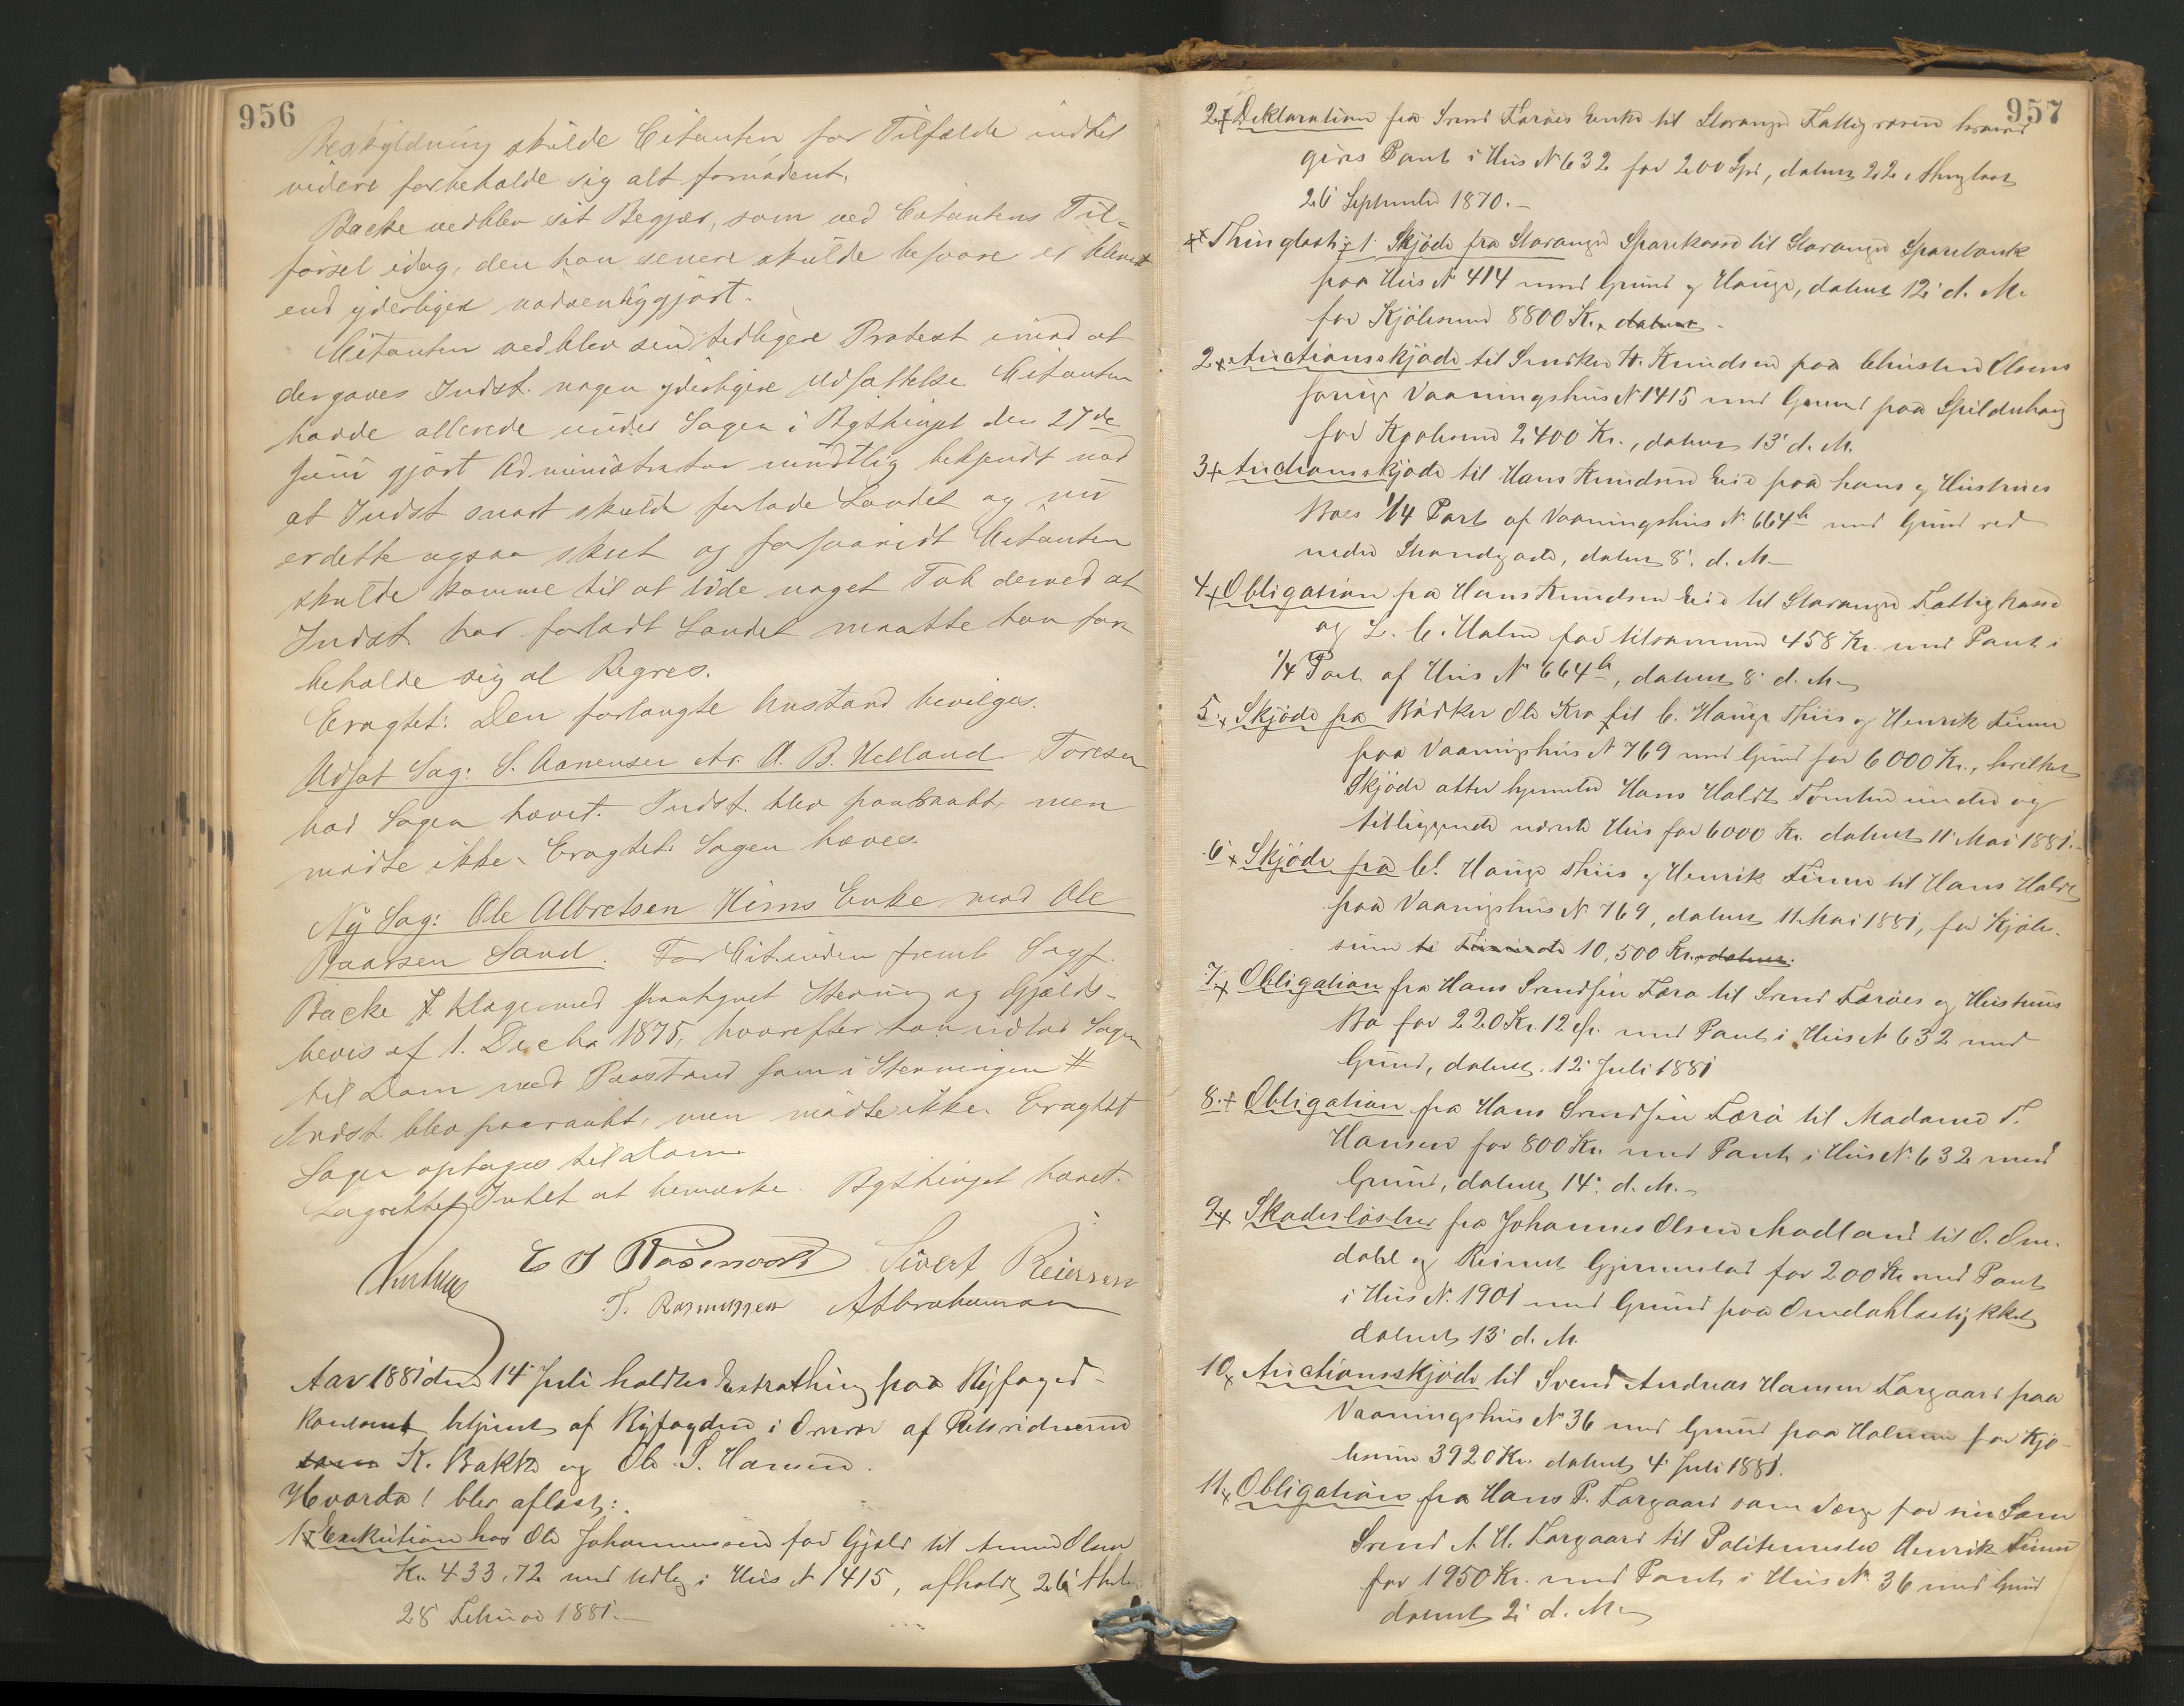 956
Beskyldning skulde Citanten for Tilfælde indtil
videre forbeholde sig alt fornødent.
Backe vedblev sit Begjær, som ved Citantens Til-
førsel idag, den han senere skulde besvare er blevet
end yderligere nødvendiggjort.
Citanten vedblev sin tidligere Protest imod at
der gaves Indst. nogen yderligere Udsættelse. Citanten
havde allerede under Sagen i Bythinget den 27de
Juni gjort Administrator mundtlig bekjendt med
at Indst. snart skulde forlade Landet og nu
er dette ogsaa skeet og forsaavidt Citanten
skulde komme til at lide noget Tab derved at
Indst. har forladt Landet maatte han for-
beholde sig al Regres.
Eragtet: Den forlangte Anstand bevilges.
Udsat Sag: S. Aanensen ctr. A. B. Helland. Toresen
bad Sagen hævet. Indst. blev paaraabt, men
mødte ikke. Eragtet: Sagen hæves.
Ny Sag: Ole Albretsen Hims Enke mod Ole
Paarsen Sand. For Cit.inden fremb Sagf.
Backe Klage med paategnet Stevning og Gjælds-
bevis af 1. Decbr 1875, hvorefter han indlod Sagen
til Dom med Paastand som i Stevningen #
Indst. blev paaraabt, men mødte ikke. Eragtet
Sagen optages til Dom
Lagrettet Intet at bemærke. Bythinget hævet.
E S Rosenvold Sivert Reiersen
T. Rasmussen A Abrahamson
Aar 1881 den 14 Juli holdtes Extrathing paa Byfoged-
kontoret betjent af Byfogden i Overvær af Retsvidnerne
K. Bakke og Ole S. Hansen.
Hvorda! blev aflæst:
1 Exekution hos Ole Johannessen for Gjæld til Anna Olsen
Kr. 433.72 med Udlæg i Hus N 1415, afholdt 26 thgl.
28 Februar 1881.
957
2 Deklaration fra Svend Færøes Enke til Stavanger Fattigvæsen hvorved
gives Pant i Hus N 632 for 200 Spd, dateret 22 thinglæst
26 September 1870.
Thinglæst: 1. Skjøde fra Stavanger Sparekasse til Stavanger Sparebank
paa Hus N 414 med Grund og Hauge, dateret 12' d. M.
for Kjøbesum 8800 Kr., dateret
2 Auctionsskjøde til Snedker H. Knudsen paa Christen Olsens
forrige Vaaningshus N 1415 med Grund paa Spilderhaug
for Kjøbesum 2400 Kr., dateret 13' d. M.
3 Auctionsskjøde til Hans Knudsen Eie paa hans og Hustrues
Boes 1/4 Part af Vaaningshus N. 664b med Grund ved
nedre Strandgade, dateret 8' d. M.
4 Obligation fra Hans Knudsen Eie til Stavanger Fattigkasse
og L. C. Holm for tilsammen 458 Kr. med Pant i
1/4 Part af Hus N 664b, dateret 8' d. M.
5 Skjøde fra Bødker Ole Kro til C. Hauge Thiis og Henrik Finne
paa Vaaningshus N 769 med Grund for 6000 Kr., hvilket
Skjøde atter hjemler Hans Holdt Tomten under og
tilliggende nævnte Hus for 6000 Kr. dateret 11' Mai 1881.
6 Skjøde fra C. Hauge Thiis og Henrik Finne til Hans Holdt
paa Vaaningshus N. 769, dateret 11. Mai 1881, for Kjøbe-
sum 10,500 Kr. dateret
7 Obligation fra Hans Svendsen Færø til Svend Færøes og Hustrues
Bo for 220 Kr. 12 Ø. med Pant i Hus N 632 med
Grund, dateret 12' Juli 1881
8. Obligation fra Hans Svendsen Færø til Madame T.
Hansen for 800 Kr. med Pant i Hus N. 632 med
Grund, dateret 14' d. M.
9 Skadesløsbrev fra Johannes Olsen Madland til O. Om-
dahl og Reinert Gjermestad for 200 Kr med Pant
i Hus N. 1901 med Grund paa Omdahlsstykket
dateret 13' d. M.
10 Auctionsskjøde til Svend Andreas Hansen Torgaard paa
Vaaningshus N. 36 med Grund paa Holmen for Kjø-
besum 3920 Kr. dateret 4' Juli 1881.
11 Obligation fra Hans P. Torgaard som Værge for sin Søn
Svend A. H. Torgaard til Politimester Henrik Finne
for 1950 Kr. med Pant i Hus N. 36 med Grund
dateret 2' d. M.